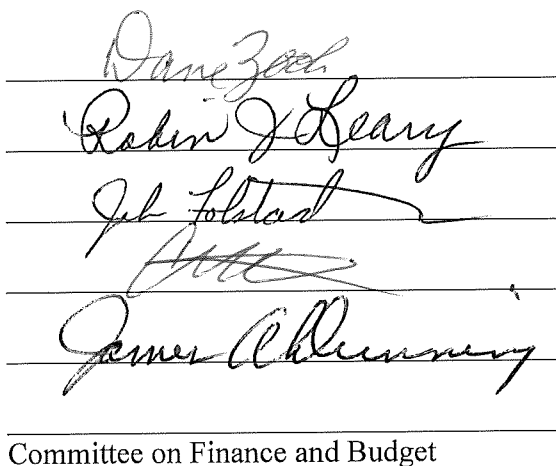 Dane Zook
Robin J Leary
John Folstad
James A Dunning
Committee on Finance and Budget